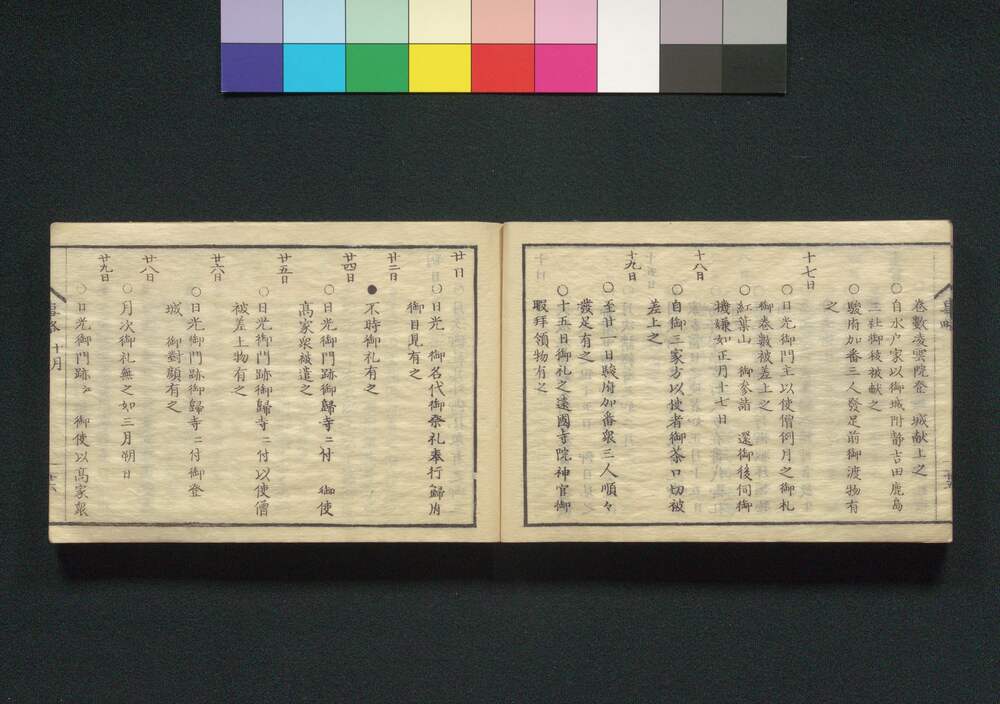 卷數凌雲院登　城献上之
○自水户家以御城附静吉田鹿島
三社御祓被献之
○駿府加番三人發足前御渡物有
之
十七日
○日光御門主以使僧例月之御札
御卷數被差上之
○紅葉山　御参詣　還御後伺御
機嫌如正月十七日
十八日
○自御三家方以使者御茶口切被
差上之
十九日
○至廿一日駿府加番衆三人順々
發足有之
○十五日御礼之遠國寺院神官御
暇拜領物有之
廿日
○日光　御名代御祭礼奉行歸府
御目見有之
廿二日
●不時御礼有之
廿四日
○日光御門跡御歸寺ニ付　御使
髙家衆被遣之
廿五日
○日光御門跡御歸寺ニ付以使僧
被差上物有之
廿六日
○日光御門跡御歸寺ニ付御登
城　御對顔有之
廿八日
○月次御礼無之如三月朔日
廿九日
○日光御門跡〻　御使以髙家衆
十月